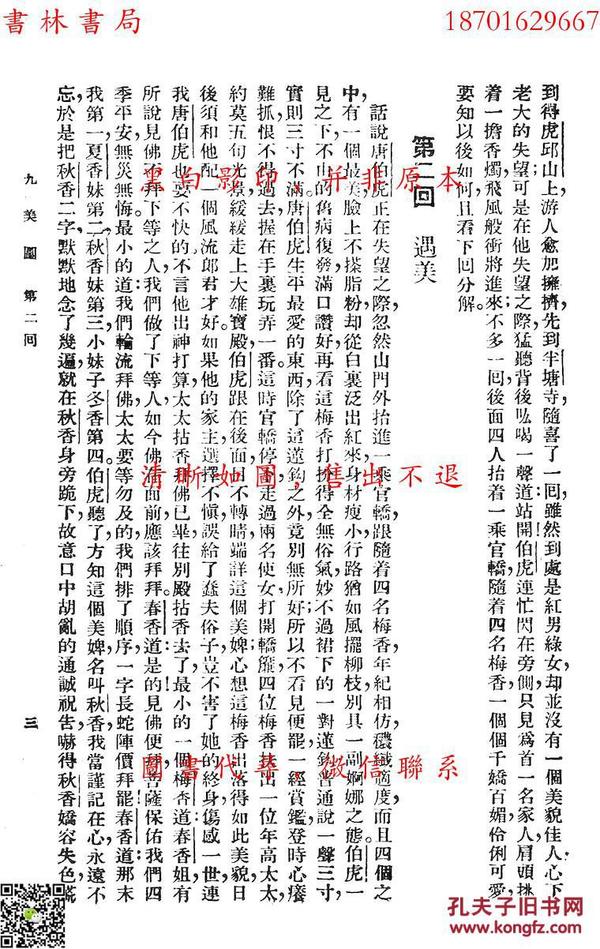 書林書局
18701629667
到得虎邱山上,游人愈加擁擠,先到半塘寺隨喜了一回,雖然到處是紅男綠女,却並沒有一個美貌佳人,心下
老大的失望,可是在他失望之際,猛聽背後吆喝一聲道,站開,伯虎連忙閃在旁側,只見爲首一名家人,肩頭挑
着一擔香燭,飛風般衝將進來,不多一回,後面四人抬着一乘官轎,隨着四名梅香,一個個千嬌百媚,伶俐可愛,
要知以後如何,且看下回分解。
第二回 遇美
話說唐伯虎正在失望之際,忽然山門外抬進一乘官轎,跟隨着四名梅香,年紀相仿,穠纖適度,而且四個之
中,有一個最美,臉上不搽脂粉,却從白裏泛出紅來,身材瘦小,行路猶如風擺柳枝,別具一副婀娜之態,伯虎一
見之下,不由的舊病復發,滿口讚好,再看這梅香打扮得全無俗氣,妙不過裙下的一對蓮鉤,普通說一聲三寸,
實則三寸不滿,唐伯虎生平最愛的東西,除了這蓮鉤之外,竟別無所好,所以不看見便罷,一經賞鑑,登時心癢
難抓,恨不得過去握在手裏玩弄一番。這時官轎停下,走過兩名使女,打開轎簾,四位梅香扶出一位年高太太,
約莫五旬光景,緩緩走上大雄寶殿,伯虎跟在後面,目不轉睛端詳這個美婢,心想這梅香出落得如此美貌,日
後須和他配一個風流郎君才好,如果他的家主選擇不愼,誤給了蠢夫俗子,豈不害了她的終身,傷感一世,連
我唐伯虎也要不快的,不言他出神打算,太太拈香拜佛已畢,往別殿拈香去了,最小的一個梅香道,春香姐,有
所說見佛不拜,下等之人,我們做了下等人,如今佛在面前,應該拜拜。春香道,是的,見佛便拜,菩薩保佑我們四
季平安,無災無悔。最小的道,我們輪流拜佛,太太要等勿及的,我們排了順序,一字長蛇陣價拜罷,春香道,那末
我第一,夏香妹第二,秋香妹第三,小妹子冬香第四。伯虎聽了,方知這個美婢,名叫秋香,我當謹記在心,永遠不
忘,於是把秋香二字,默默地念了幾遍,就在秋香身旁跪下,故意口中胡亂的通誠祝告,嚇得秋香嬌容失色,慌
九美圖 第二回
三
黑白影印,並非原本
清晰如圖,售出不退
圖書代尋 微信聯系
孔夫子旧书网
www.kongfz.com